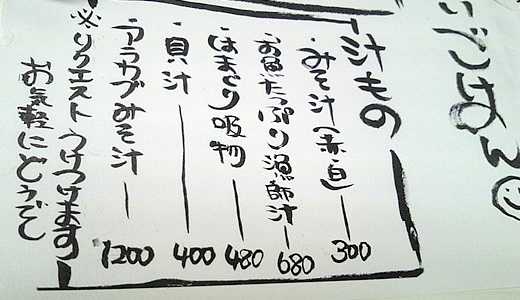 いごはん
汁もの
・みそ汁(赤・白) 300
お魚たっぷり漁師汁 680
はまぐり吸物 480
・貝汁 400
・アラカブみそ汁 1200
※リクエストうけつけます
お気軽にどうぞ